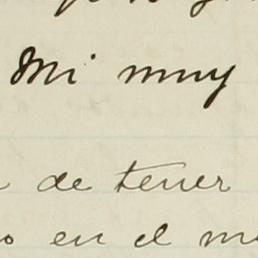 Mi muy
de tener
en el